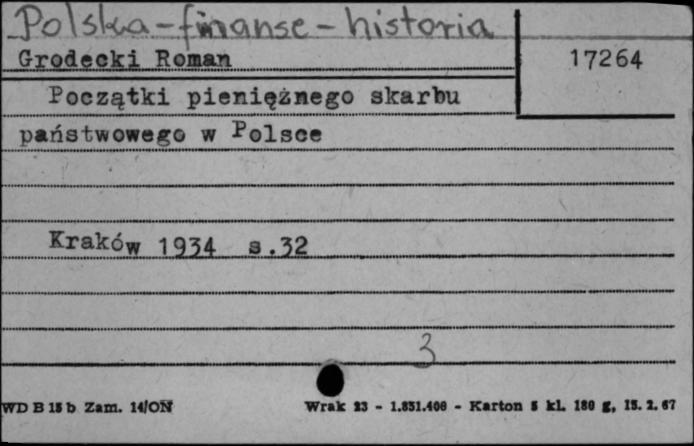 Polska - finanse - historia
Grodecki Roman
17264
Początki pieniężnego skarbu
państwowego w Polsce
Kraków 1934 s.32
3
WD B 15 b Zam. 14/ON Wrak 23 - 1.851.400 - Karton 5 kl. 180 g, 15. 2. 67